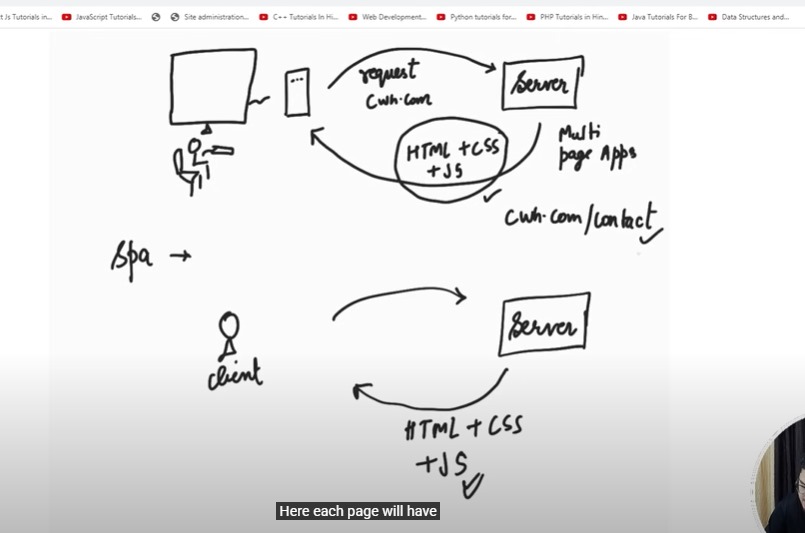 t Js Tutorials in...
JavaScript Tutorials...
Site administration...
C++ Tutorials In Hi...
Web Development...
Python tutorials for...
PHP Tutorials in Hin...
Java Tutorials For B...
Data Structures and...
request
Cwh.com
Server
HTML + CSS
+ JS
Multi
page Apps
Cwh.com/contact
Spa →
Server
client
HTML + CSS
+ JS
Here each page will have